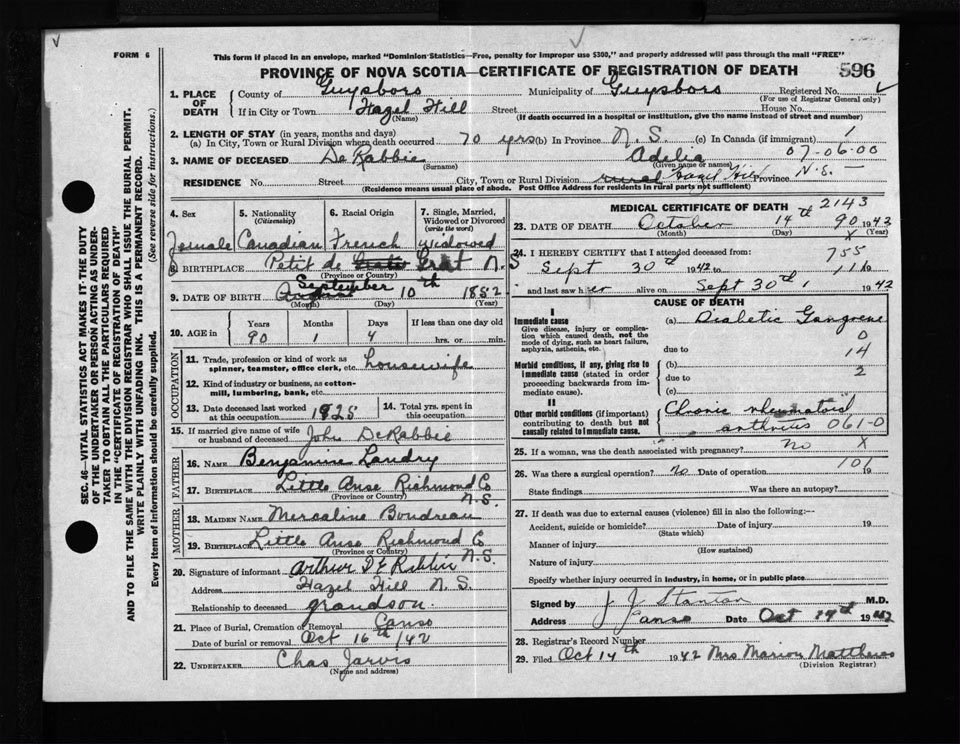 FORM 6
This form if placed in an envelope, marked "Dominion Statistics—Free, penalty for improper use $300," and properly addressed will pass through the mail "FREE"
PROVINCE OF NOVA SCOTIA—CERTIFICATE OF REGISTRATION OF DEATH 596
SEC. 46—VITAL STATISTICS ACT MAKES IT THE DUTY
OF THE UNDERTAKER OR PERSON ACTING AS UNDER-
TAKER TO OBTAIN ALL THE PARTICULARS REQUIRED
IN THE "CERTIFICATE OF REGISTRATION OF DEATH"
AND TO FILE THE SAME WITH THE DIVISION REGISTRAR WHO SHALL ISSUE THE BURIAL PERMIT.
WRITE PLAINLY WITH UNFADING INK. THIS IS A PERMANENT RECORD.
Every item of information should be carefully supplied. (See reverse side for instructions.)
1. PLACE OF DEATH County of Guysboro Municipality of Guysboro Registered No.
(For use of Registrar General only)
If in City or Town Hazel Hill Street House No.
(Name) (If death occurred in a hospital or institution, give the name instead of street and number)
2. LENGTH OF STAY (in years, months and days)
(a) In City, Town or Rural Division where death occurred 70 yrs (b) In Province N.S. (c) In Canada (if immigrant) 1
3. NAME OF DECEASED DeRabbie Adelia 07-06-00
(Surname) (Given name or names)
RESIDENCE No. Street City, Town or Rural Division rural Hazel Hill Province N.S.
(Residence means usual place of abode. Post Office Address for residents in rural parts not sufficient)
4. Sex 5. Nationality (Citizenship) 6. Racial Origin 7. Single, Married, Widowed or Divorced (write the word)
Female Canadian French Widowed
8. BIRTHPLACE Petit de Grat N.S
(Province or Country)
9. DATE OF BIRTH August September 10th 1852
(Month) (Day) (Year)
10. AGE in Years Months Days If less than one day old
90 1 4 hrs. or min.
OCCUPATION
11. Trade, profession or kind of work as spinner, teamster, office clerk, etc. housewife
12. Kind of industry or business, as cotton-mill, lumbering, bank, etc.
13. Date deceased last worked at this occupation 1925 14. Total yrs. spent in this occupation
15. If married give name of wife or husband of deceased John DeRabbie
FATHER
16. NAME Benjamine Landry
17. BIRTHPLACE Little Anse Richmond Co N.S.
(Province or Country)
MOTHER
18. MAIDEN NAME Mercaline Boudreau
19. BIRTHPLACE Little Anse Richmond Co N.S.
(Province or Country)
20. Signature of informant Arthur
Address Hazel Hill N.S.
Relationship to deceased grandson.
21. Place of Burial, Cremation or Removal Canso
Date of burial or removal Oct 16th /42
22. UNDERTAKER Chas Jarvis
(Name and address)
MEDICAL CERTIFICATE OF DEATH 2143
23. DATE OF DEATH October 14th 90 1942
(Month) (Day) (Year)
24. I HEREBY CERTIFY that I attended deceased from 755
Sept 30th 1942 to 111
and last saw her alive on Sept 30th 1942
CAUSE OF DEATH
I
Immediate cause
Give disease, injury or complication which caused death, not the mode of dying, such as heart failure, asphyxia, asthenia, etc.
(a) Diabetic Gangrene
0
due to 14
Morbid conditions, if any, giving rise to immediate cause (stated in order proceeding backwards from immediate cause)
(b) 2
due to
(c)
II
Other morbid conditions (if important) contributing to death but not causally related to immediate cause.
Chronic rheumatoid
arthritis 061-0
25. If a woman, was the death associated with pregnancy? no X
26. Was there a surgical operation? no Date of operation 101 19
State findings Was there an autopsy?
27. If death was due to external causes (violence) fill in also the following:—
Accident, suicide or homicide? Date of injury 19
(State which)
Manner of injury
(How sustained)
Nature of injury
Specify whether injury occurred in industry, in home, or in public place
Signed by J J Stanton M.D.
Address Canso Date Oct 19th 1942
28. Registrar's Record Number
29. Filed Oct 14th 1942 Mrs Marion Matthews
(Division Registrar)